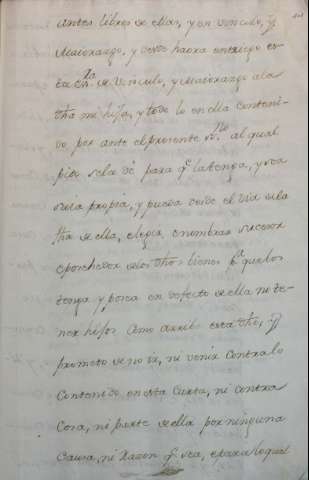 antes libres de ellas, y en vinculo, y
Maiorasgo, y desde haora entrego es
ta de Vinculo, y Maiorasgo ala
dha mi hija, y todo lo en ella conteni
do por ante el presente al qual
pido sela dé para q.e latenga, y sea
suia propia, y pueda desde el dia dela
fha de ella, elegir, e nombrar succesor
eposehedor delos dhos bienes p.a quelos
tenga y posea en defecto de ella no te
ner hijos como arriba está dho, y
prometo de no ir, ni venir contralo
contenido en esta Carta, ni contra
Cosa, ni parte de ella por ninguna
Causa, ni Razon q.e sea, e para loqual